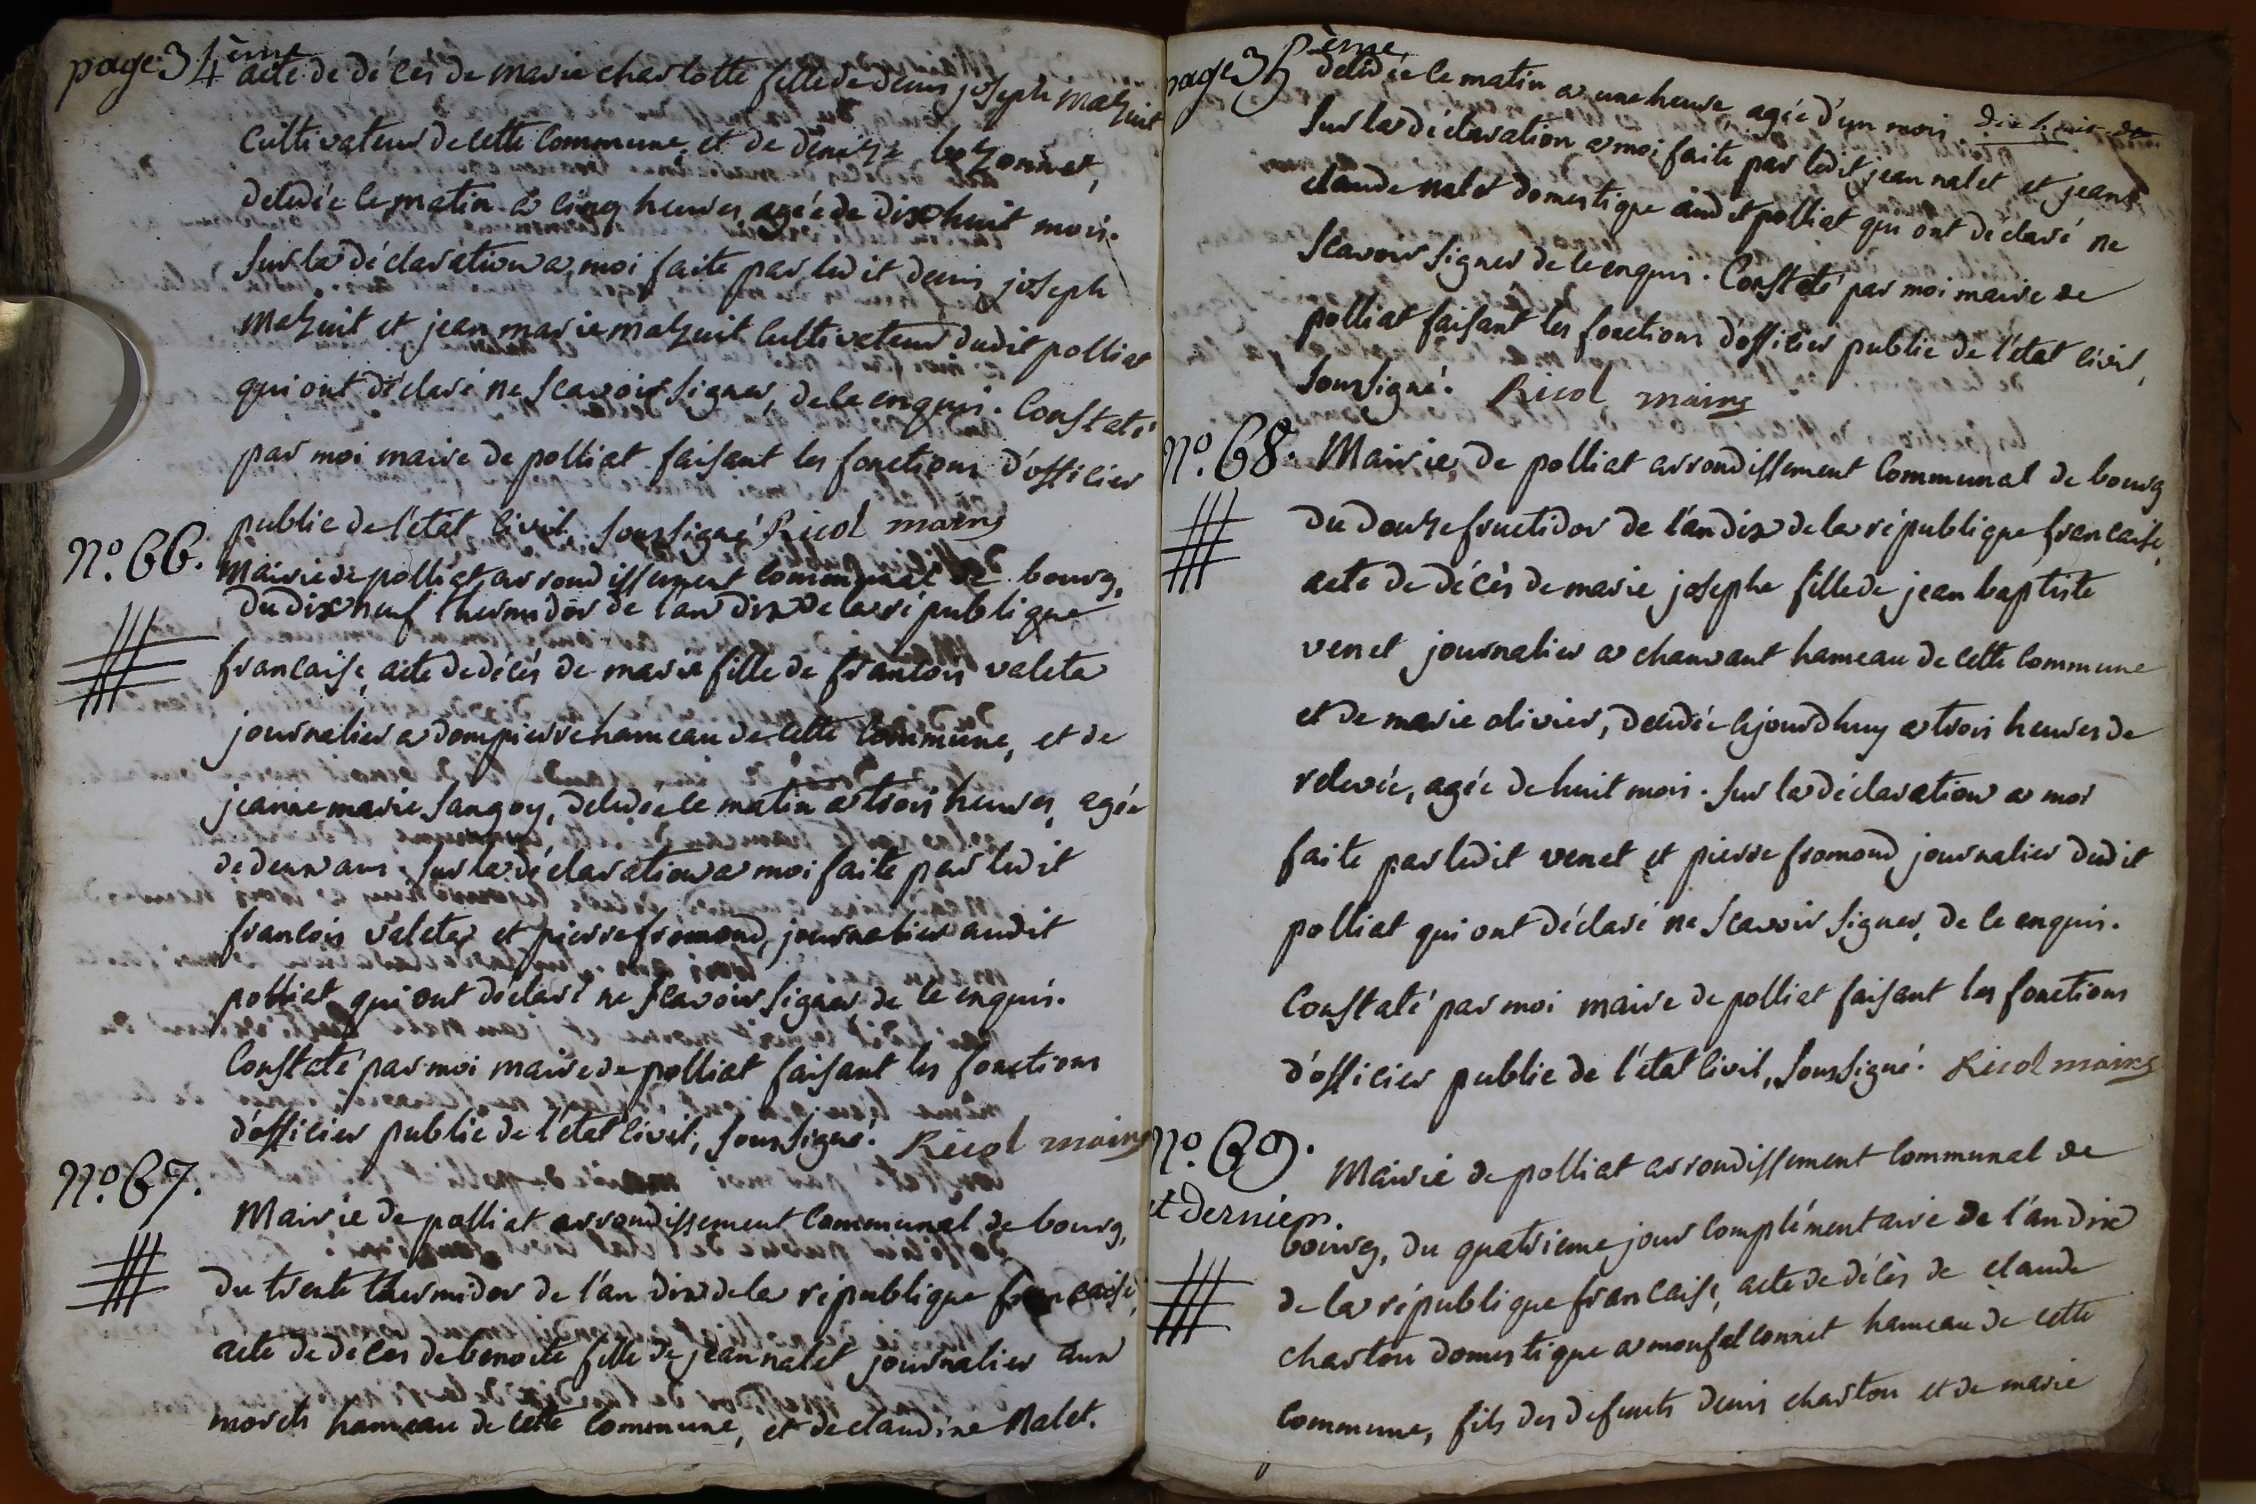 page 34ème
acte de décès de marie charlotte fille de denis joseph mazuit
cultivateur de cette commune, et de denize bozonnet,
décédée ce matin a cinq heures, agée de dix huit mois.
sur la déclaration a moi faite par ledit denis joseph
mazuit et jean marie mazuit cultivateur dudit polliat
qui ont déclaré ne scavoir signer, de ce enquis. Constaté
par moi maire de polliat faisant les fonctions d'officier
public de l'état civil, soussigné Ricol maire
N.o 66. Mairie de polliat arrondissement communal de bourg,
du dix neuf thermidor de l'an dix de la république
francaise, acte de décès de marie fille de francois valete
journalier a dompierre hameau de cette commune, et de
jeanne marie sangoy, décédée ce matin a trois heures, agée
de deux ans, sur la déclaration a moi faite par ledit
francois valete et pierre fromond, journalier audit
polliat qui ont déclaré ne scavoir signer, de ce enquis.
Constaté par moi maire de polliat faisant les fonctions
d'officier public de l'état civil, soussigné. Ricol maire
N.o 67.
Mairie de polliat arrondissement communal de bourg,
du trente thermidor de l'an dix de la république francaise,
acte de décès de benoite fille de jean nalet journalier aux
morets hameau de cette commune, et de claudine Nalet.
page 35ème
décédée ce matin a une heure, agée d'un mois
sur la déclaration a moi faite par ledit jean nalet et jean
claude nalet domestique audit polliat qui ont déclaré ne
scavoir signer de ce enquis. Constaté par moi maire de
polliat faisant les fonctions d'officier public de l'état civil,
soussigné. Ricol maire
N.o 68. Mairie de polliat arrondissement communal de bourg
du douze fructidor de l'an dix de la république francaise,
acte de décès de marie josephe fille de jean baptiste
venet journalier a chanvant hameau de cette commune
et de marie olivier, décédée cejourdhuy a trois heures de
relevée, agée de huit mois. sur la déclaration a moi
faite par ledit venet et pierre fromond journalier dudit
polliat qui ont déclaré ne scavoir signer, de ce enquis.
Constaté par moi maire de polliat faisant les fonctions
d'officier public de l'état civil, soussigné. Ricol maire
N.o 69.
et dernier.
Mairie de polliat arrondissement communal de
bourg, du quatrieme jour complémentaire de l'an dix
de la république francaise, acte de décès de claude
charton domestique a monfalconnet hameau de cette
commune, fils des defunts denis charton et de marie